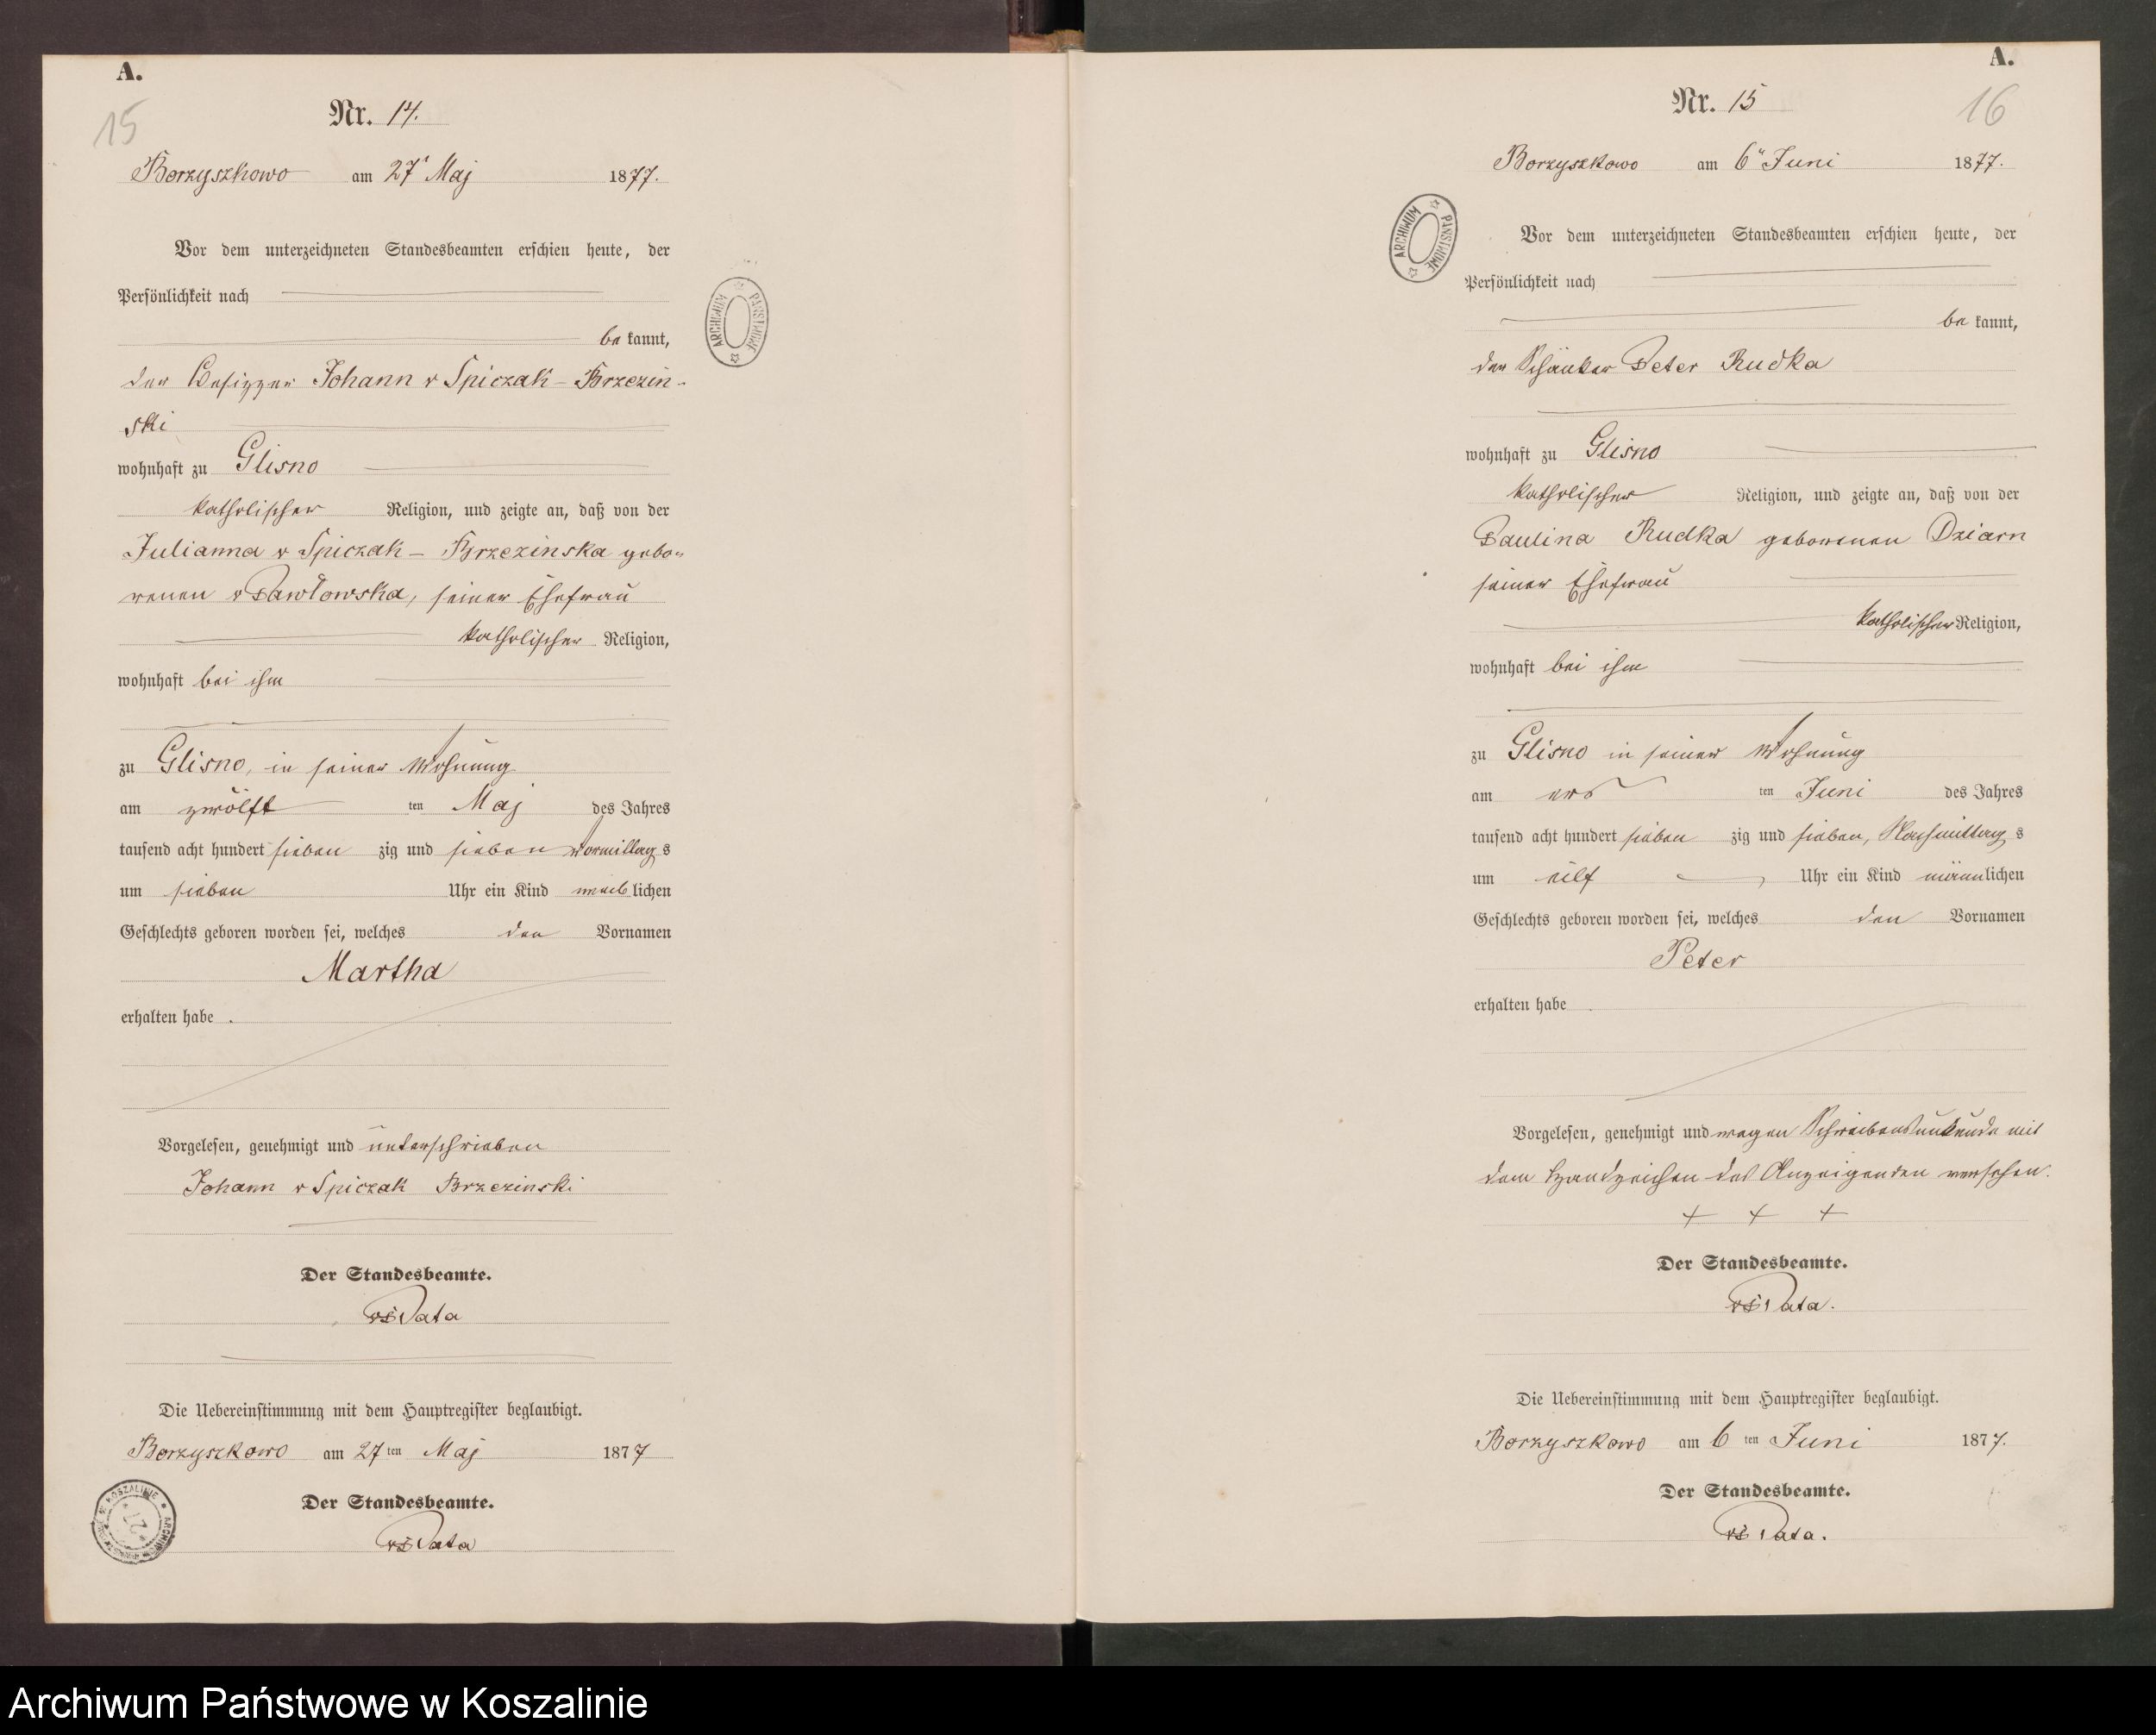 A.
15
Nr. 14.
Borzyszkowo am 27t Maj 1877.
Vor dem unterzeichneten Standesbeamten erschien heute, der
Persönlichkeit nach
be kannt,
der Besitzer Johann v Spiczak-Brzezin-
ski
wohnhaft zu Glisno
katholischer Religion, und zeigte an, daß von der
Julianna v Spiczak-Brzezinska gebo-
renen v Pawlowska, seiner Ehefrau
katholischer Religion,
wohnhaft bei ihm
zu Glisno, in seiner Wohnung
am zwölft ten Maj des Jahres
tausend acht hundert sieben zig und sieben Vormittag s
um sieben Uhr ein Kind weib lichen
Geschlechts geboren worden sei, welches den Vornamen
Martha
erhalten habe.
Vorgelesen, genehmigt und unterschrieben
Johann v Spiczak Brzezinski
Der Standesbeamte.
Pata
Die Uebereinstimmung mit dem Hauptregister beglaubigt.
Borzyszkowo am 27 ten Maj 1877
Der Standesbeamte.
Pata
ARCHIWUM PAŃSTWOWE
A.
16
Nr. 15
Borzyszkowo am 6 Juni 1877.
ARCHIWUM PAŃSTWOWE
Vor dem unterzeichneten Standesbeamten erschien heute, der
Persönlichkeit nach
be kannt,
der Schänker Peter Rudka
wohnhaft zu Glisno
katholischer Religion, und zeigte an, daß von der
Paulina Rudka geborenen Dziarn
seiner Ehefrau
katholischer Religion,
wohnhaft bei ihm
zu Glisno in seiner Wohnung
am ers ten Juni des Jahres
tausend acht hundert sieben zig und sieben, Nachmittag s
um eilf Uhr ein Kind männlichen
Geschlechts geboren worden sei, welches den Vornamen
Peter
erhalten habe
Vorgelesen, genehmigt und wegen Schreibensunkunde mit
dem Handzeichen des Anzeigenden versehen.
+ + +
Der Standesbeamte.
Pata.
Die Uebereinstimmung mit dem Hauptregister beglaubigt.
Borzyszkowo am 6 ten Juni 1877.
Der Standesbeamte.
Pata.
Archiwum Państwowe w Koszalinie